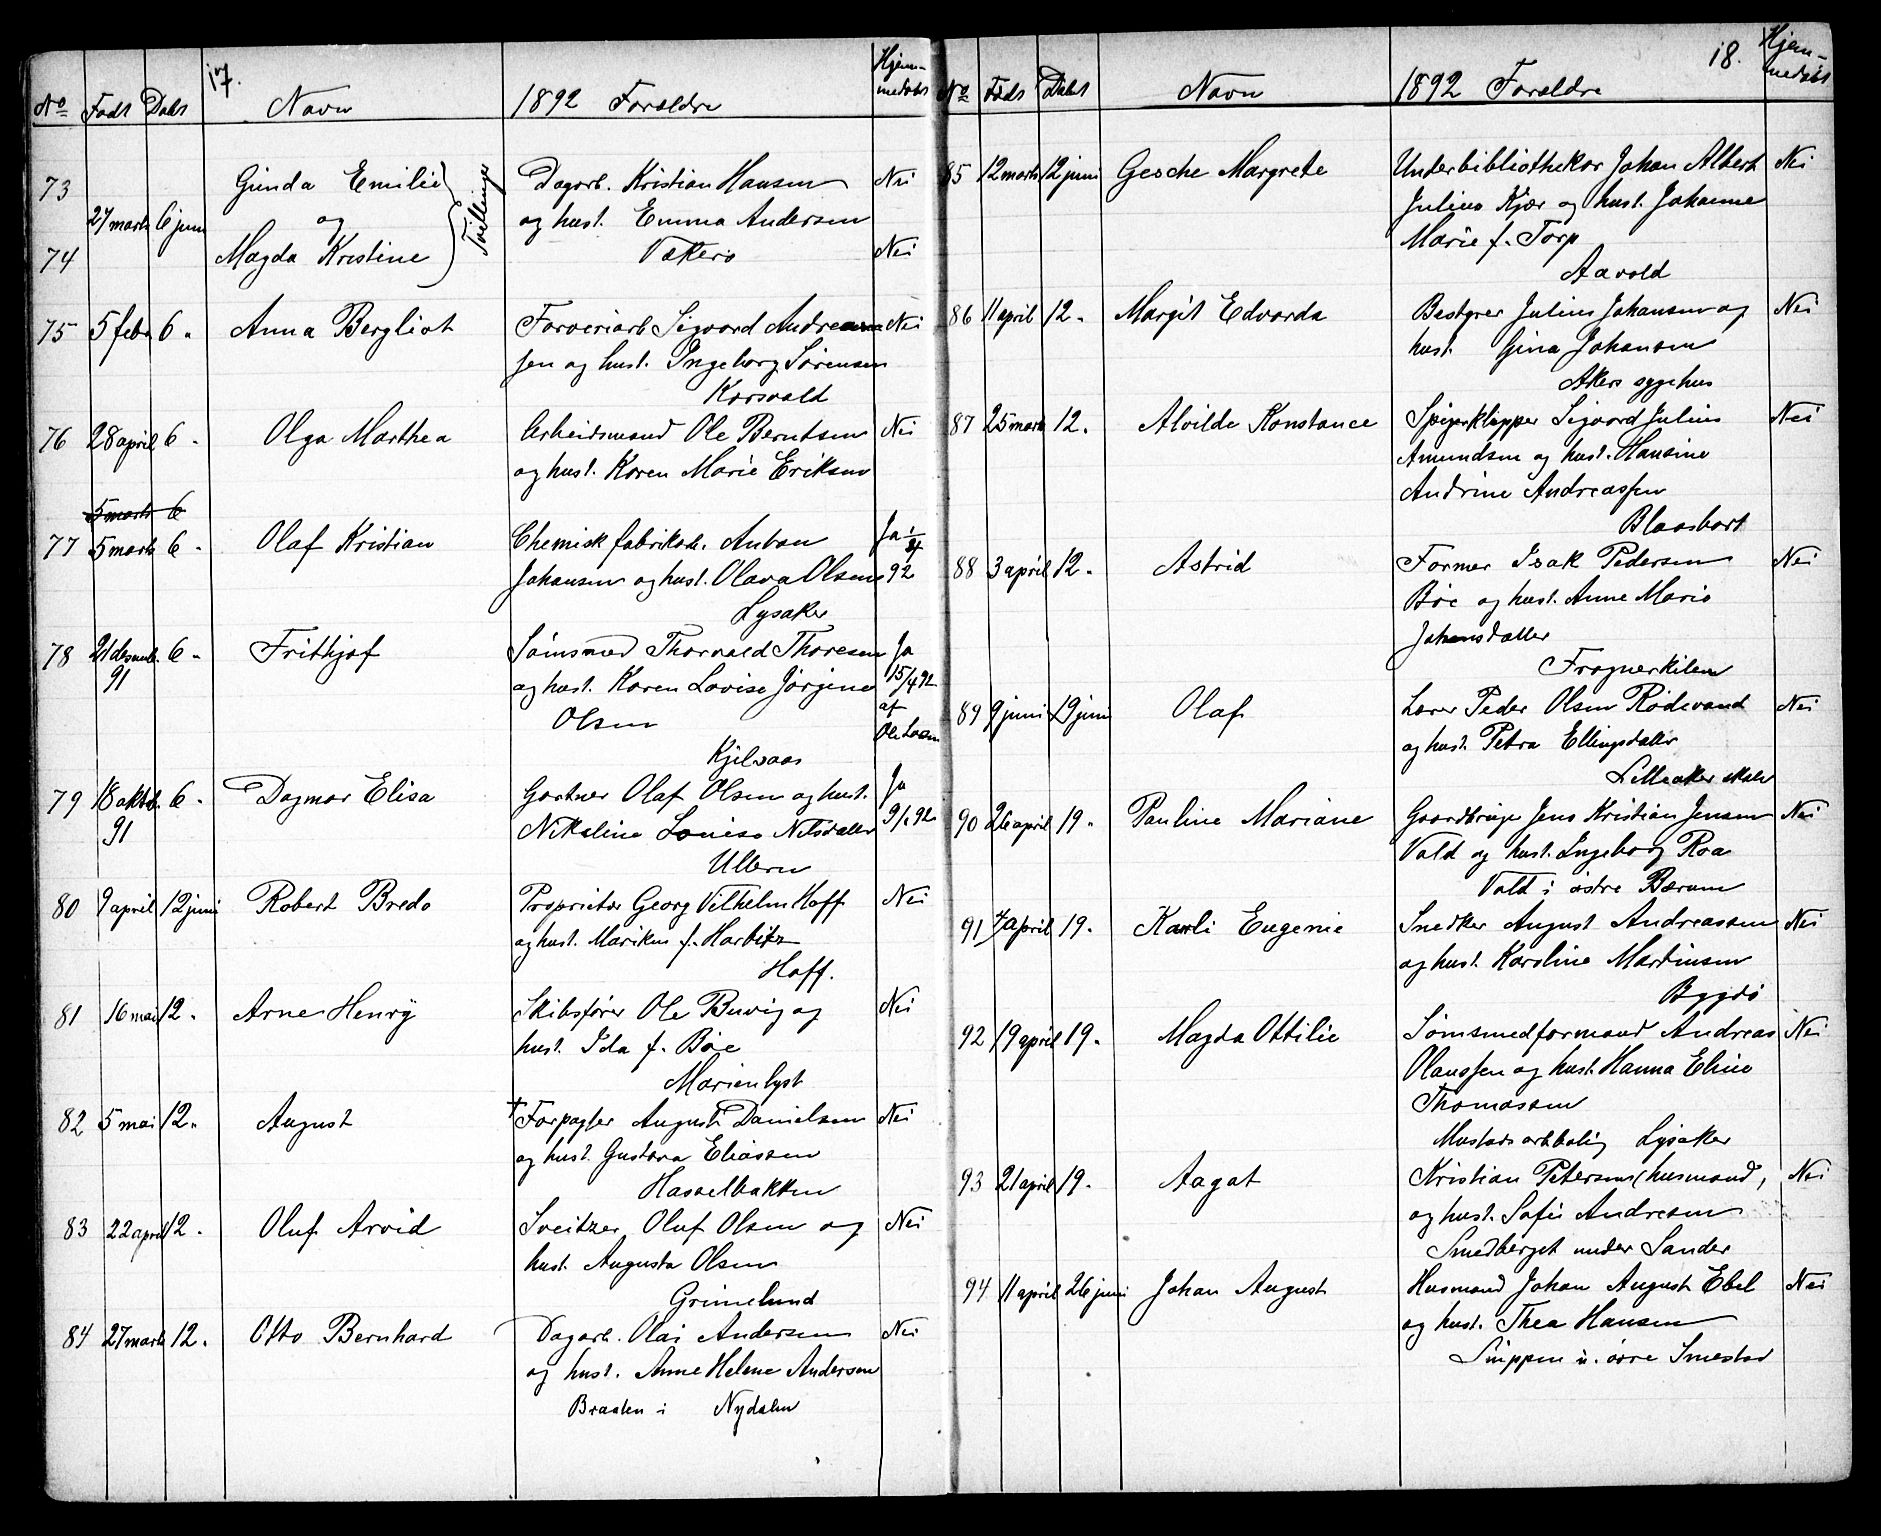 17.
No Født Døbt Navn 1892 Forældre Hjem-
medøbt
73 Gunda Emilie Tvillinger Dagarb. Kristian Hansen Nei
27 marts 6 juni og og hust. Emma Andersen
74 Magda Kristine Vækerø Nei
75 5 febr 6 „ Anna Bergliot Farveriarb Sigvard Andrea Nei
sen og hust. Ingeborg Sørensen
Korsvold
76 28 april 6 „ Olga Marthea Arbeidsmand Ole Berntsen Nei
og hust. Karen Marie Eriksen
5 marts 6
77 5 marts 6 „ Olaf Kristian Chemisk fabrikarb. Anton Ja 1/4
Johansen og hust. Olava Olsen 92
Lysaker
78 21 desemb. 6 „ Frithjof Sømsmed Thorvald Thoresen Ja
91 og hust. Karen Lovise Jørgine 15/4 92
Olsen af
Ole Larsen
Kjelsaas
79 18 oktob. 6 „ Dagmar Elisa Gartner Olaf Olsen og hust. Ja
91 Nikoline Lovise Nilsdatter 9/1 92
Ullern
80 9 april 12 juni Robert Bredo Proprietær Georg Vilhelm Hoff Nei
og hust. Marikus f. Harbitz
Hoff.
81 16 mai 12 „ Arne Henry Skibsfører Ole Buvig og Nei
hust. Ida f. Bøe
Marienlyst
82 5 mai 12 „ August † Forpagter August Danielsen Nei
og hust. Gustava Eliassen
Hasselbakken
83 22 april 12 „ Oluf Arvid Sveitzer Oluf Olsen og Nei
hust. Augusta Olsen
Grimelund
84 27 marts 12 „ Otto Bernhard Dagarb. Olai Andersen Nei
og hust. Anne Helene Andersen
Braaten i Nydalen
18.
No Født Døbt Navn 1892 Forældre Hjem-
medøbt
85 12 marts 12 juni Gesche Margrete Underbibliothekar Johan Albert Nei
Julius Kjær og hust. Johanne
Marie f. Torp
Aavold
86 11 april 12 „ Margit Edvarda Bestyrer Julius Johansen og Nei
hust. Gina Johansen
Akers sygehus
87 25 marts 12 „ Alvilde Konstance Spigerklipper Sigvard Julius Nei
Amundsen og hust. Hansine
Andrine Andreassen
Blaasbort
88 3 april 12 „ Astrid Former Isak Pedersen Nei
Bøe og hust. Anne Marie
Johansdatter
Frognerkilen
89 9 juni 19 juni Olaf Lærer Peder Olsen Rødevand Nei
og hust. Petra Ellingsdatter
Lilleaker skole
90 26 april 19 „ Pauline Mariane Gaardbruger Jens Kristian Jensen Nei
Vold og hust. Ingeborg Roa
Vold i østre Bærum
91 7 april 19 „ Karli Eugenie Snedker August Andreassen Nei
og hust. Karoline Martinsen
Bygdø
92 19 april 19 „ Magda Ottilie Sømsmedformand Andreas Nei
Olaussen og hust. Hanna Eline
Thomassen
Mustads arbbolig Lysaker
93 21 april 19 „ Aagot Kristian Petersen (husmand, Nei
og hust. Sofie Andresen
Smedberget under Sander
94 11 april 26 juni Johan August Husmand Johan August Ebel Nei
og hust. Thea Hansen
Snippen u. øvre Smestad